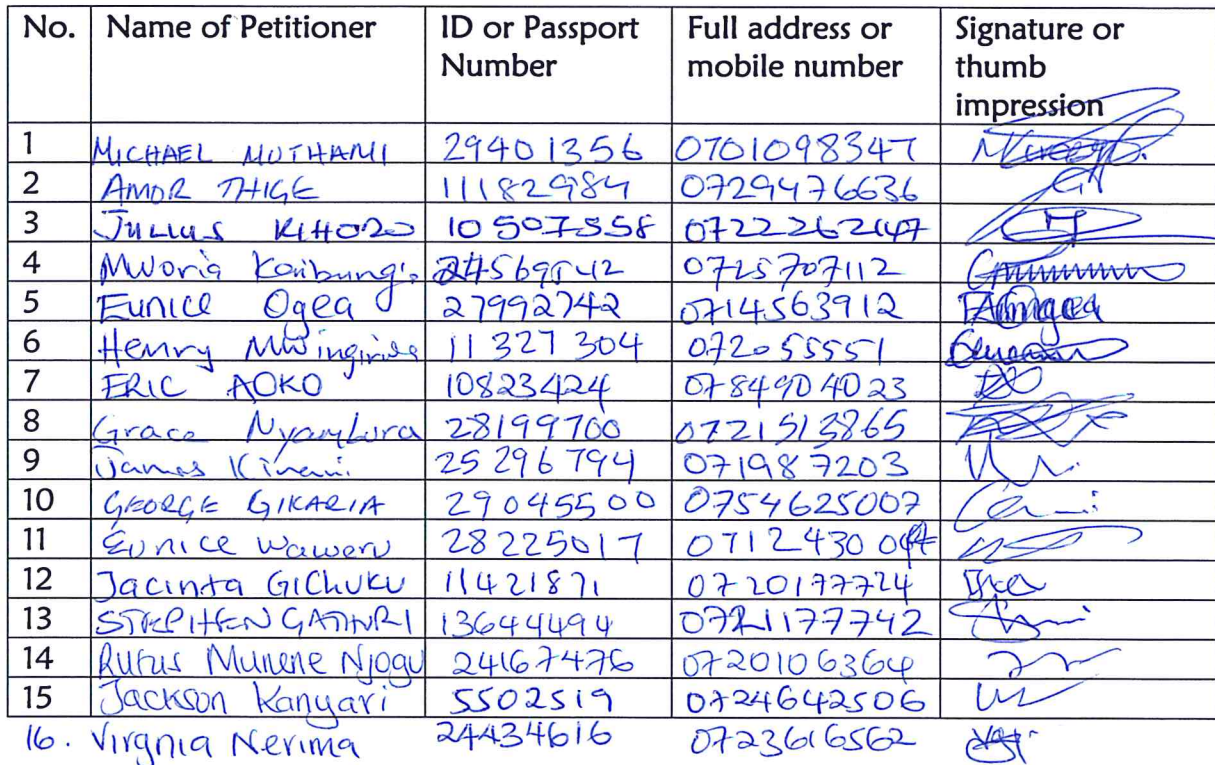 No. Name of Petitioner ID or Passport Number Full address or mobile number Signature or thumb impression
1 MICHAEL MUTHAMI 29401356 0701098347
2 AMOR THIGE 11182984 0729476636
3 JULIUS KIHORO 10507558 0722262147
4 Mworia 24569542 0725707112
5 Eunice Ogea 27992742 0714563912
6 Henry 11327304 072055551
7 ERIC AOKO 10823424 0784904023
8 Grace Nyambura 28199700 0721513865
9 James Kinani 25296794 071987203
10 GEORGE GIKARIA 29045500 0754625007
11 Eunice Waweru 28225017
12 Jacinta GICHUKU 11421871 0720177724
13 STEPHEN GATHURI 13644494 0721177742
14 Rufus Munene Njogu 24167476 0720106364
15 Jackson Kanyari 5502519 0724642506
16. Virgnia Nerima 24434616 0723616562